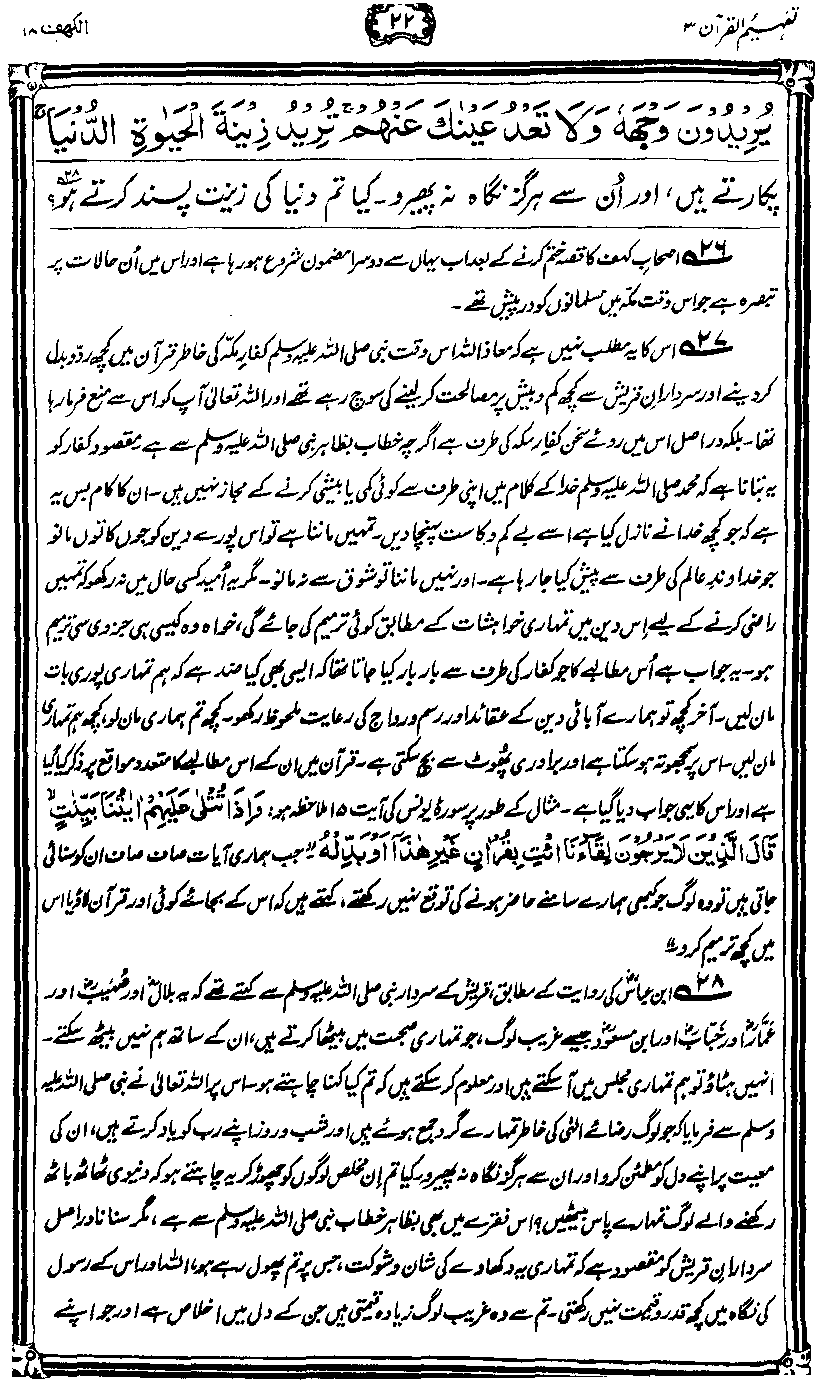 تفہیم القرآن ۳
۲۲
الکہف ۱۸
يُرِيْدُوْنَ وَجْهَهٗ وَلَا تَعْدُ عَيْنٰكَ عَنْهُمْ ۚ تُرِيْدُ زِيْنَةَ الْحَيٰوةِ الدُّنْيَا ۚ
پکارتے ہیں، اور اُن سے ہرگز نگاہ نہ پھیرو۔ کیا تم دنیا کی زینت پسند کرتے ہو؟ ۲۸
۲۶ اصحابِ کہف کا قصہ ختم کرنے کے بعد اب یہاں سے دوسرا مضمون شروع ہو رہا ہے اور اس میں اُن حالات پر
تبصرہ ہے جو اس وقت مکہ میں مسلمانوں کو درپیش تھے۔
۲۷ اس کا یہ مطلب نہیں ہے کہ معاذ اللہ اس وقت نبی صلی اللہ علیہ وسلم کفارِ مکہ کی خاطر قرآن میں کچھ ردّ و بدل
کر دینے اور سردارانِ قریش سے کچھ کم و بیش پر مصالحت کر لینے کی سوچ رہے تھے اور اللہ تعالیٰ آپ کو اس سے منع فرما رہا
تھا۔ بلکہ دراصل اس میں روئے سخن کفارِ مکہ کی طرف ہے اگرچہ خطاب بظاہر نبی صلی اللہ علیہ وسلم سے ہے۔ مقصود کفار کو
یہ بتانا ہے کہ محمد صلی اللہ علیہ وسلم خدا کے کلام میں اپنی طرف سے کوئی کمی یا بیشی کرنے کے مجاز نہیں ہیں۔ ان کا کام بس یہ
ہے کہ جو کچھ خدا نے نازل کیا ہے اسے بے کم و کاست پہنچا دیں۔ تمہیں ماننا ہے تو اس پورے دین کو جوں کا توں مانو
جو خداوندِ عالم کی طرف سے پیش کیا جا رہا ہے۔ اور نہیں ماننا تو شوق سے نہ مانو۔ مگر یہ اُمید کسی حال میں نہ رکھو کہ تمہیں
راضی کرنے کے لیے اِس دین میں تمہاری خواہشات کے مطابق کوئی ترمیم کی جائے گی، خواہ وہ کیسی ہی جزوی سی ترمیم
ہو۔ یہ جواب ہے اُس مطالبے کا جو کفار کی طرف سے بار بار کیا جاتا تھا کہ ایسی بھی کیا ضد ہے کہ ہم تمہاری پوری بات
مان لیں۔ آخر کچھ تو ہمارے آبائی دین کے عقائد اور رسم و رواج کی رعایت ملحوظ رکھو۔ کچھ تم ہماری مان لو، کچھ ہم تمہاری
مان لیں۔ اس پر سمجھوتہ ہو سکتا ہے اور برادری پھوٹ سے بچ سکتی ہے۔ قرآن میں ان کے اس مطالبے کا متعدد مواقع پر ذکر کیا گیا
ہے اور اس کا یہی جواب دیا گیا ہے۔ مثال کے طور پر سورۂ یونس کی آیت ۱۵ ملاحظہ ہو: وَاِذَا تُتْلٰى عَلَيْهِمْ اٰيَاتُنَا بَيِّنٰتٍ
قَالَ الَّذِيْنَ لَا يَرْجُوْنَ لِقَآءَنَا ائْتِ بِقُرْاٰنٍ غَيْرِ هٰذَآ اَوْ بَدِّلْهُ "جب ہماری آیات صاف صاف ان کو سنائی
جاتی ہیں تو وہ لوگ جو کبھی ہمارے سامنے حاضر ہونے کی توقع نہیں رکھتے، کہتے ہیں کہ اس کے بجائے کوئی اور قرآن لاؤ یا اس
میں کچھ ترمیم کرو"
۲۸ ابن عباسؓ کی روایت کے مطابق، قریش کے سردار نبی صلی اللہ علیہ وسلم سے کہتے تھے کہ یہ بلالؓ اور صُہَیبؓ اور
عَمّارؓ اور خَبّابؓ اور ابن مسعودؓ جیسے غریب لوگ، جو تمہاری صحبت میں بیٹھا کرتے ہیں، ان کے ساتھ ہم نہیں بیٹھ سکتے۔
انہیں ہٹاؤ تو ہم تمہاری مجلس میں آ سکتے ہیں اور معلوم کر سکتے ہیں کہ تم کیا کہنا چاہتے ہو۔ اس پر اللہ تعالیٰ نے نبی صلی اللہ علیہ
وسلم سے فرمایا کہ جو لوگ رضائے الٰہی کی خاطر تمہارے گرد جمع ہوئے ہیں اور شب و روز اپنے رب کو یاد کرتے ہیں، ان کی
معیت پر اپنے دل کو مطمئن کرو اور ان سے ہرگز نگاہ نہ پھیرو۔ کیا تم اِن مخلص لوگوں کو چھوڑ کر یہ چاہتے ہو کہ دنیوی ٹھاٹھ باٹھ
رکھنے والے لوگ تمہارے پاس بیٹھیں؟ اس فقرے میں بھی بظاہر خطاب نبی صلی اللہ علیہ وسلم سے ہے، مگر سنانا دراصل
سردارانِ قریش کو مقصود ہے کہ تمہاری یہ دکھاوے کی شان و شوکت، جس پر تم پھول رہے ہو، اللہ اور اس کے رسول
کی نگاہ میں کچھ قدر و قیمت نہیں رکھتی۔ تم سے وہ غریب لوگ زیادہ قیمتی ہیں جن کے دل میں اخلاص ہے اور جو اپنے